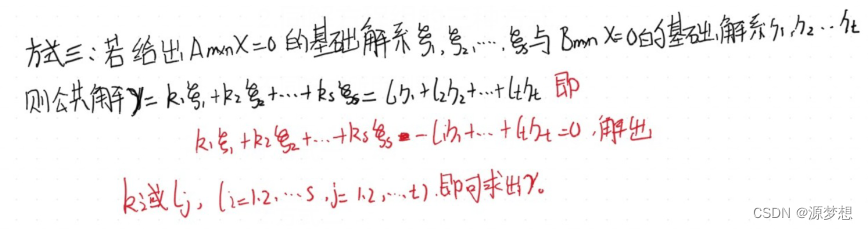 方式三:若给出Am×nX=0的基础解系ξ₁,ξ₂,…,ξs与Bm×nX=0的基础解系η₁,η₂…ηt
则公共解γ=k₁ξ₁+k₂ξ₂+…+ksξs=l₁η₁+l₂η₂+…+ltηt 即
k₁ξ₁+k₂ξ₂+…+ksξs-l₁η₁+…+ltηt=0,解出
ki或lj,(i=1.2,…s,j=1.2,…t).即可求出γ。
CSDN @源梦想